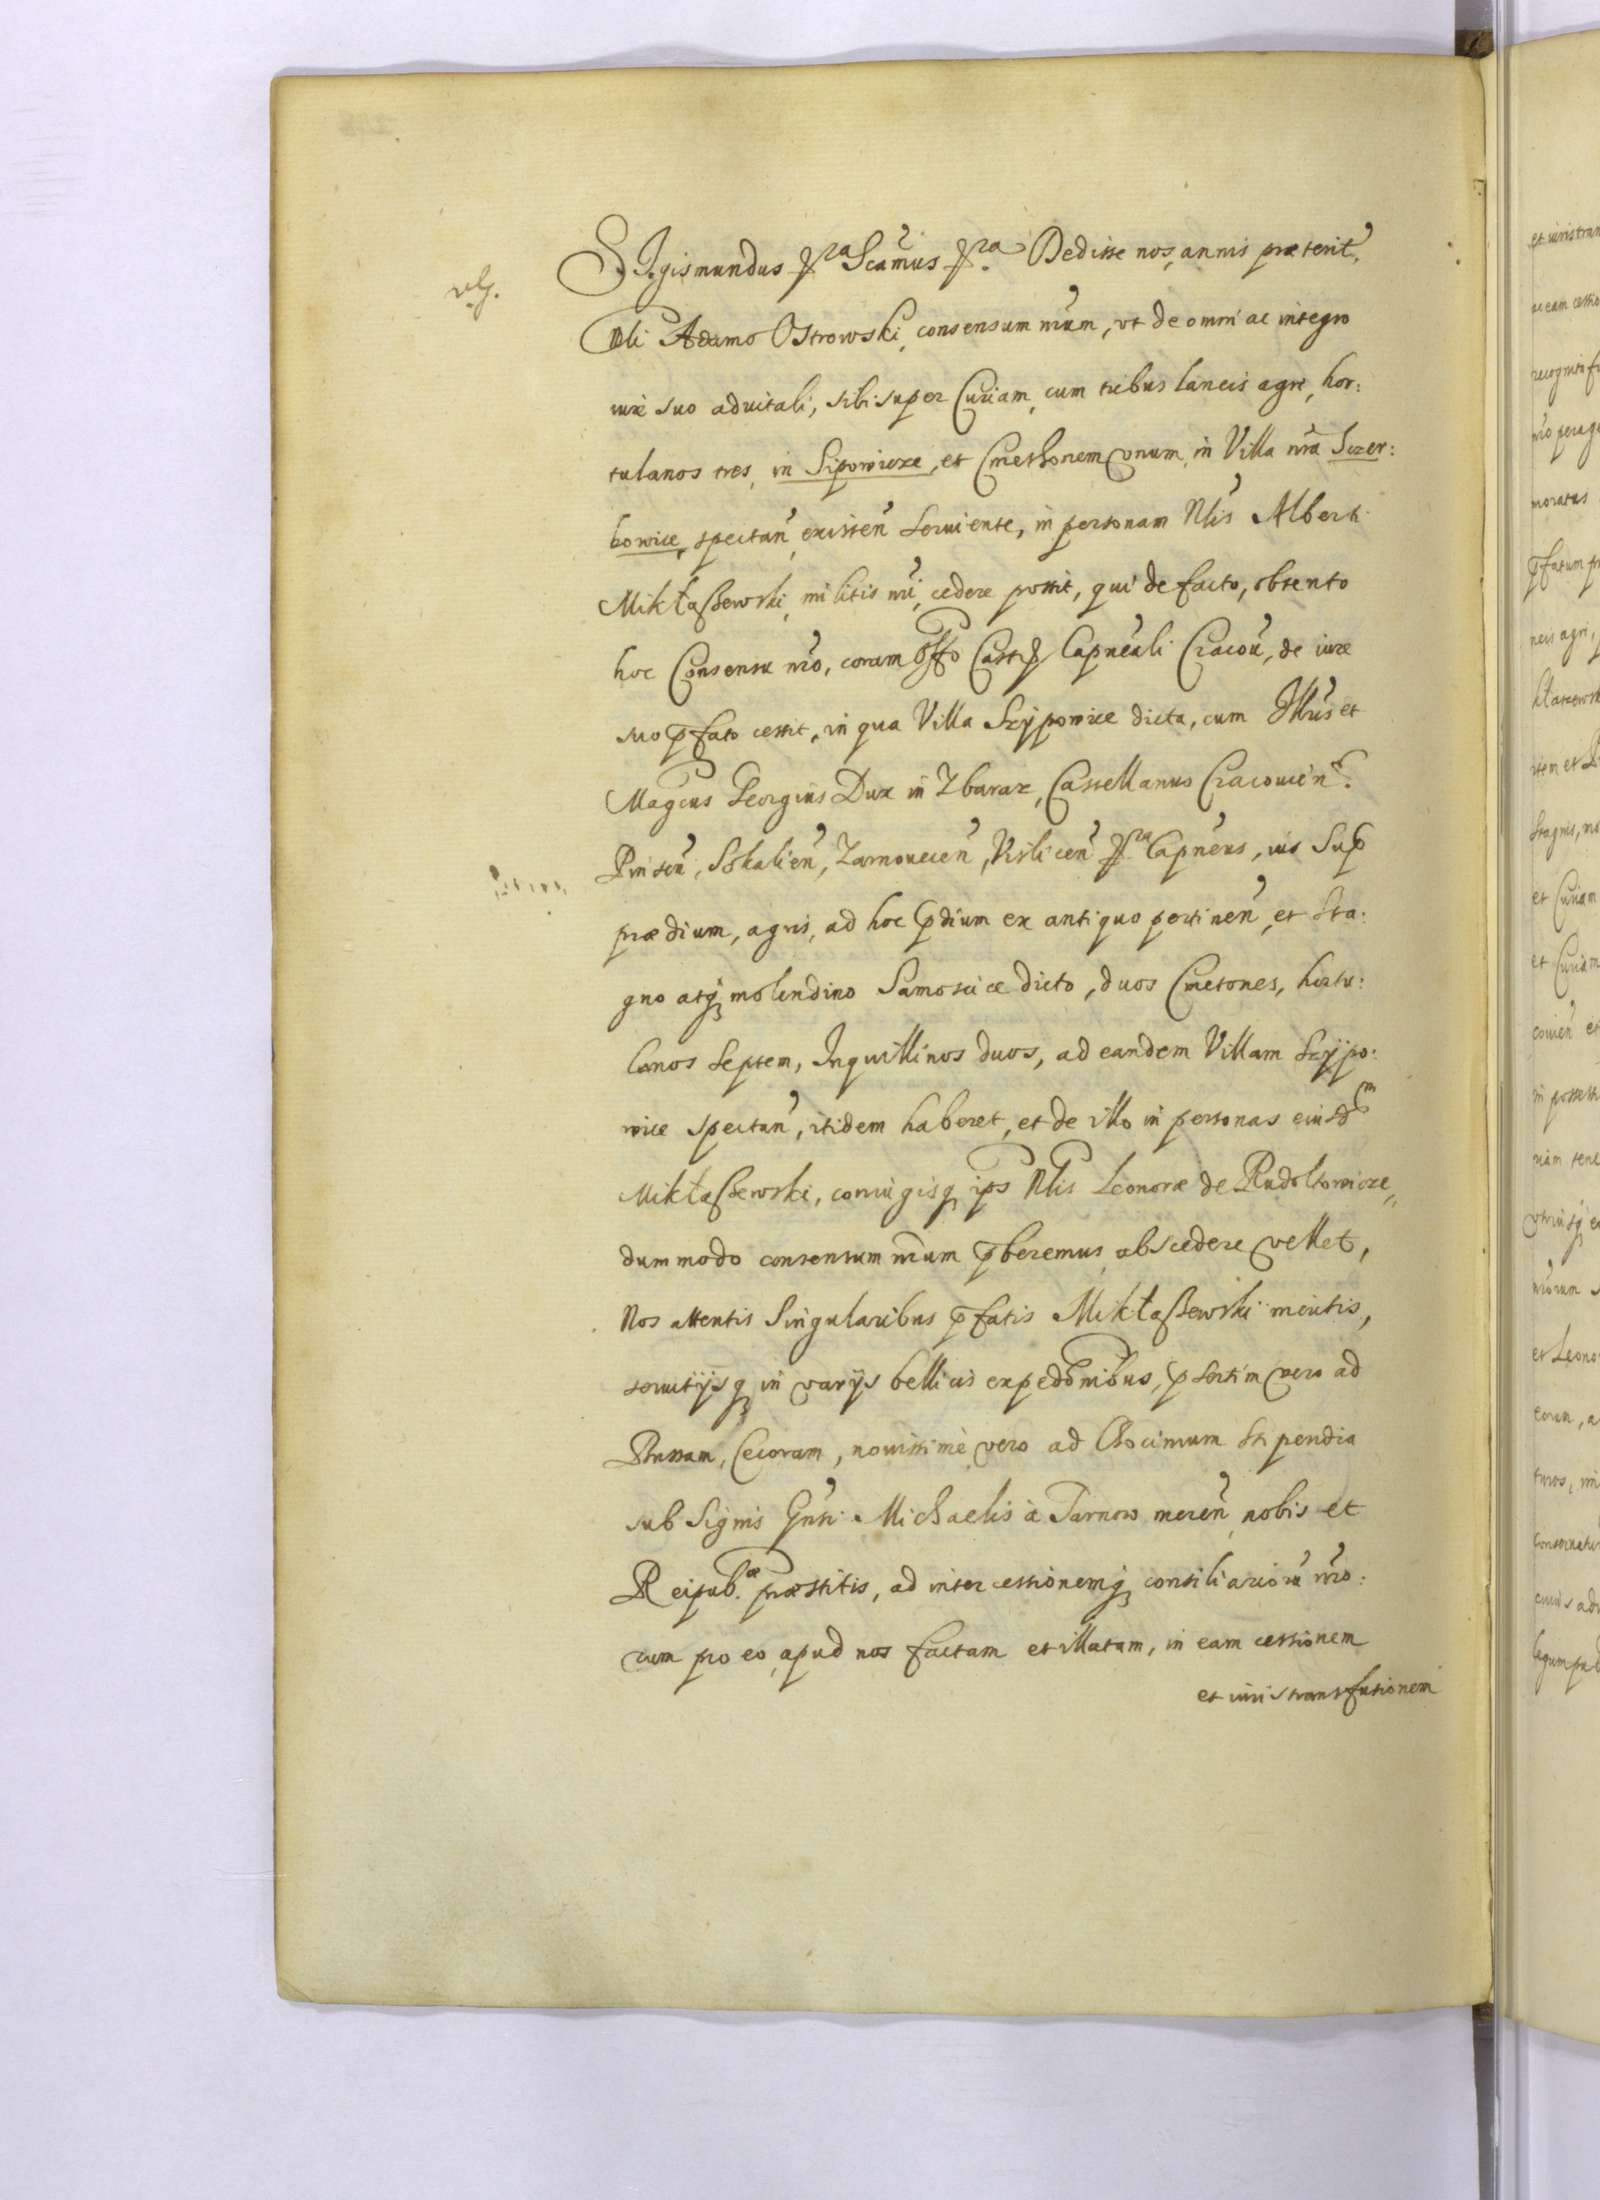 Sigismundus &ra Scamus &ra Dedisse nos, annis præterit,
Nli Adamo Ostrowski, consensum nrum, vt de omni ac integro
iure suo aduitali, sibi super Curiam, cum tribus laneis agri, hor:
tulanos tres, in Sipowicze, et Cmethonem vnum, in Villa nra Sczer:
bowice, spectan existen seruiente, in personam Nlis Alberti
Mikłaßewski, militis nri, cedere possit, qui de facto, obtento
hoc Consensu nro, coram Offo Castr Capneali Cracou, de iure
suo pfato cessit, in qua Villa Szÿpowice dicta, cum Illris et
Magcus Georgius Dux in Zbaraz, Castellanus Cracouien.
Pinscen, Sokalien, Zarnouecen, Vislicen &ra Capneus, ius Sup
prædium, agris, ad hoc pdium ex antiquo pertinen, et sta:
gno atq molendino Samoscice dicto, duos Cmetones, hortu:
lanos septem, Inquillinos duos, ad eandem Villam Szÿpo:
wice spectan, itidem haberet, et de illo in personas eiusdm
Mikłaßewski, coniugisq ips Nlis Leonoræ de Rudoltowicze,
dummodo consensum nrum pberemus, abscedere vellet,
Nos attentis Singularibus pfatis Mikłaßewski meritis,
seruitijsq in varijs bellicis expedonibus, psertim vero ad
Bussam, Cecoram, nouissimè vero ad Chocimum stipendia
sub Signis Gnsi Michaelis à Tarnow meren, nobis et
Reipub.æ præstitis, ad intercessionemq consiliarioru nro:
rum pro eo, apud nos factam et illatam, in eam cessionem
et iuris transfusionem